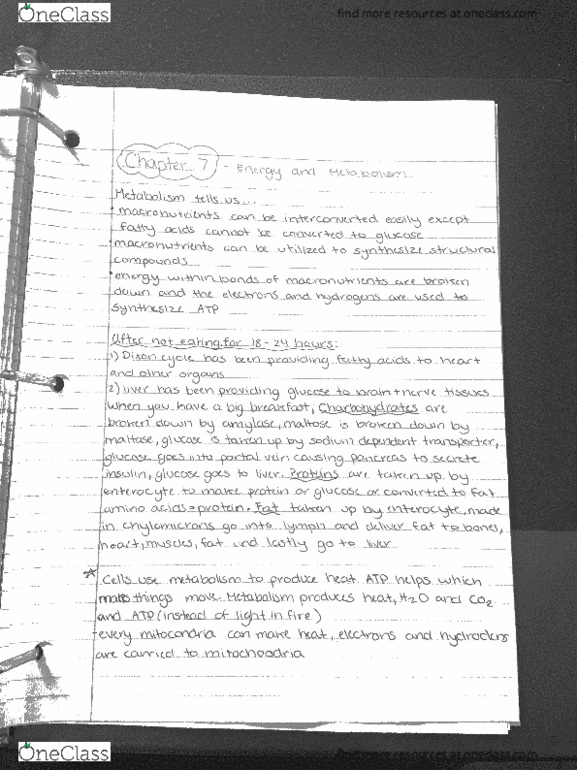 OneClass
find more resources at oneclass.com
Chapter 7 - Energy and Metabolism
Metabolism tells us...
macronutrients can be interconverted easily except
fatty acids cannot be converted to glucose
macronutrients can be utilized to synthesize structural
compounds
energy within bonds of macronutrients are broken
down and the electrons and hydrogens are used to
synthesize ATP
After not eating for 18-24 hours:
1) Dixon cycle has been providing fatty acids to heart
and other organs
2) liver has been providing glucose to brain + nerve tissues
when you have a big breakfast, Charbohydrates are
broken down by amylase, maltose is broken down by
maltase, glucose is taken up by sodium dependent transporter,
glucose goes into portal vein causing pancreas to secrete
insulin, glucose goes to liver. Proteins are taken up by
enterocyte to make protein or glucose or converted to fat
amino acids = protein. Fat taken up by enterocyte, made
in chylomicrons go into lymph and deliver fat to bones,
heart, muscles, fat und lastly go to liver
* Cells use metabolism to produce heat. ATP helps which
things move. Metabolism produces heat, H2O and CO2
and ATP (instead of light in fire)
every mitocondria can make heat, electrons and
are carried to mitochondria
OneClass
find more resources at oneclass.com